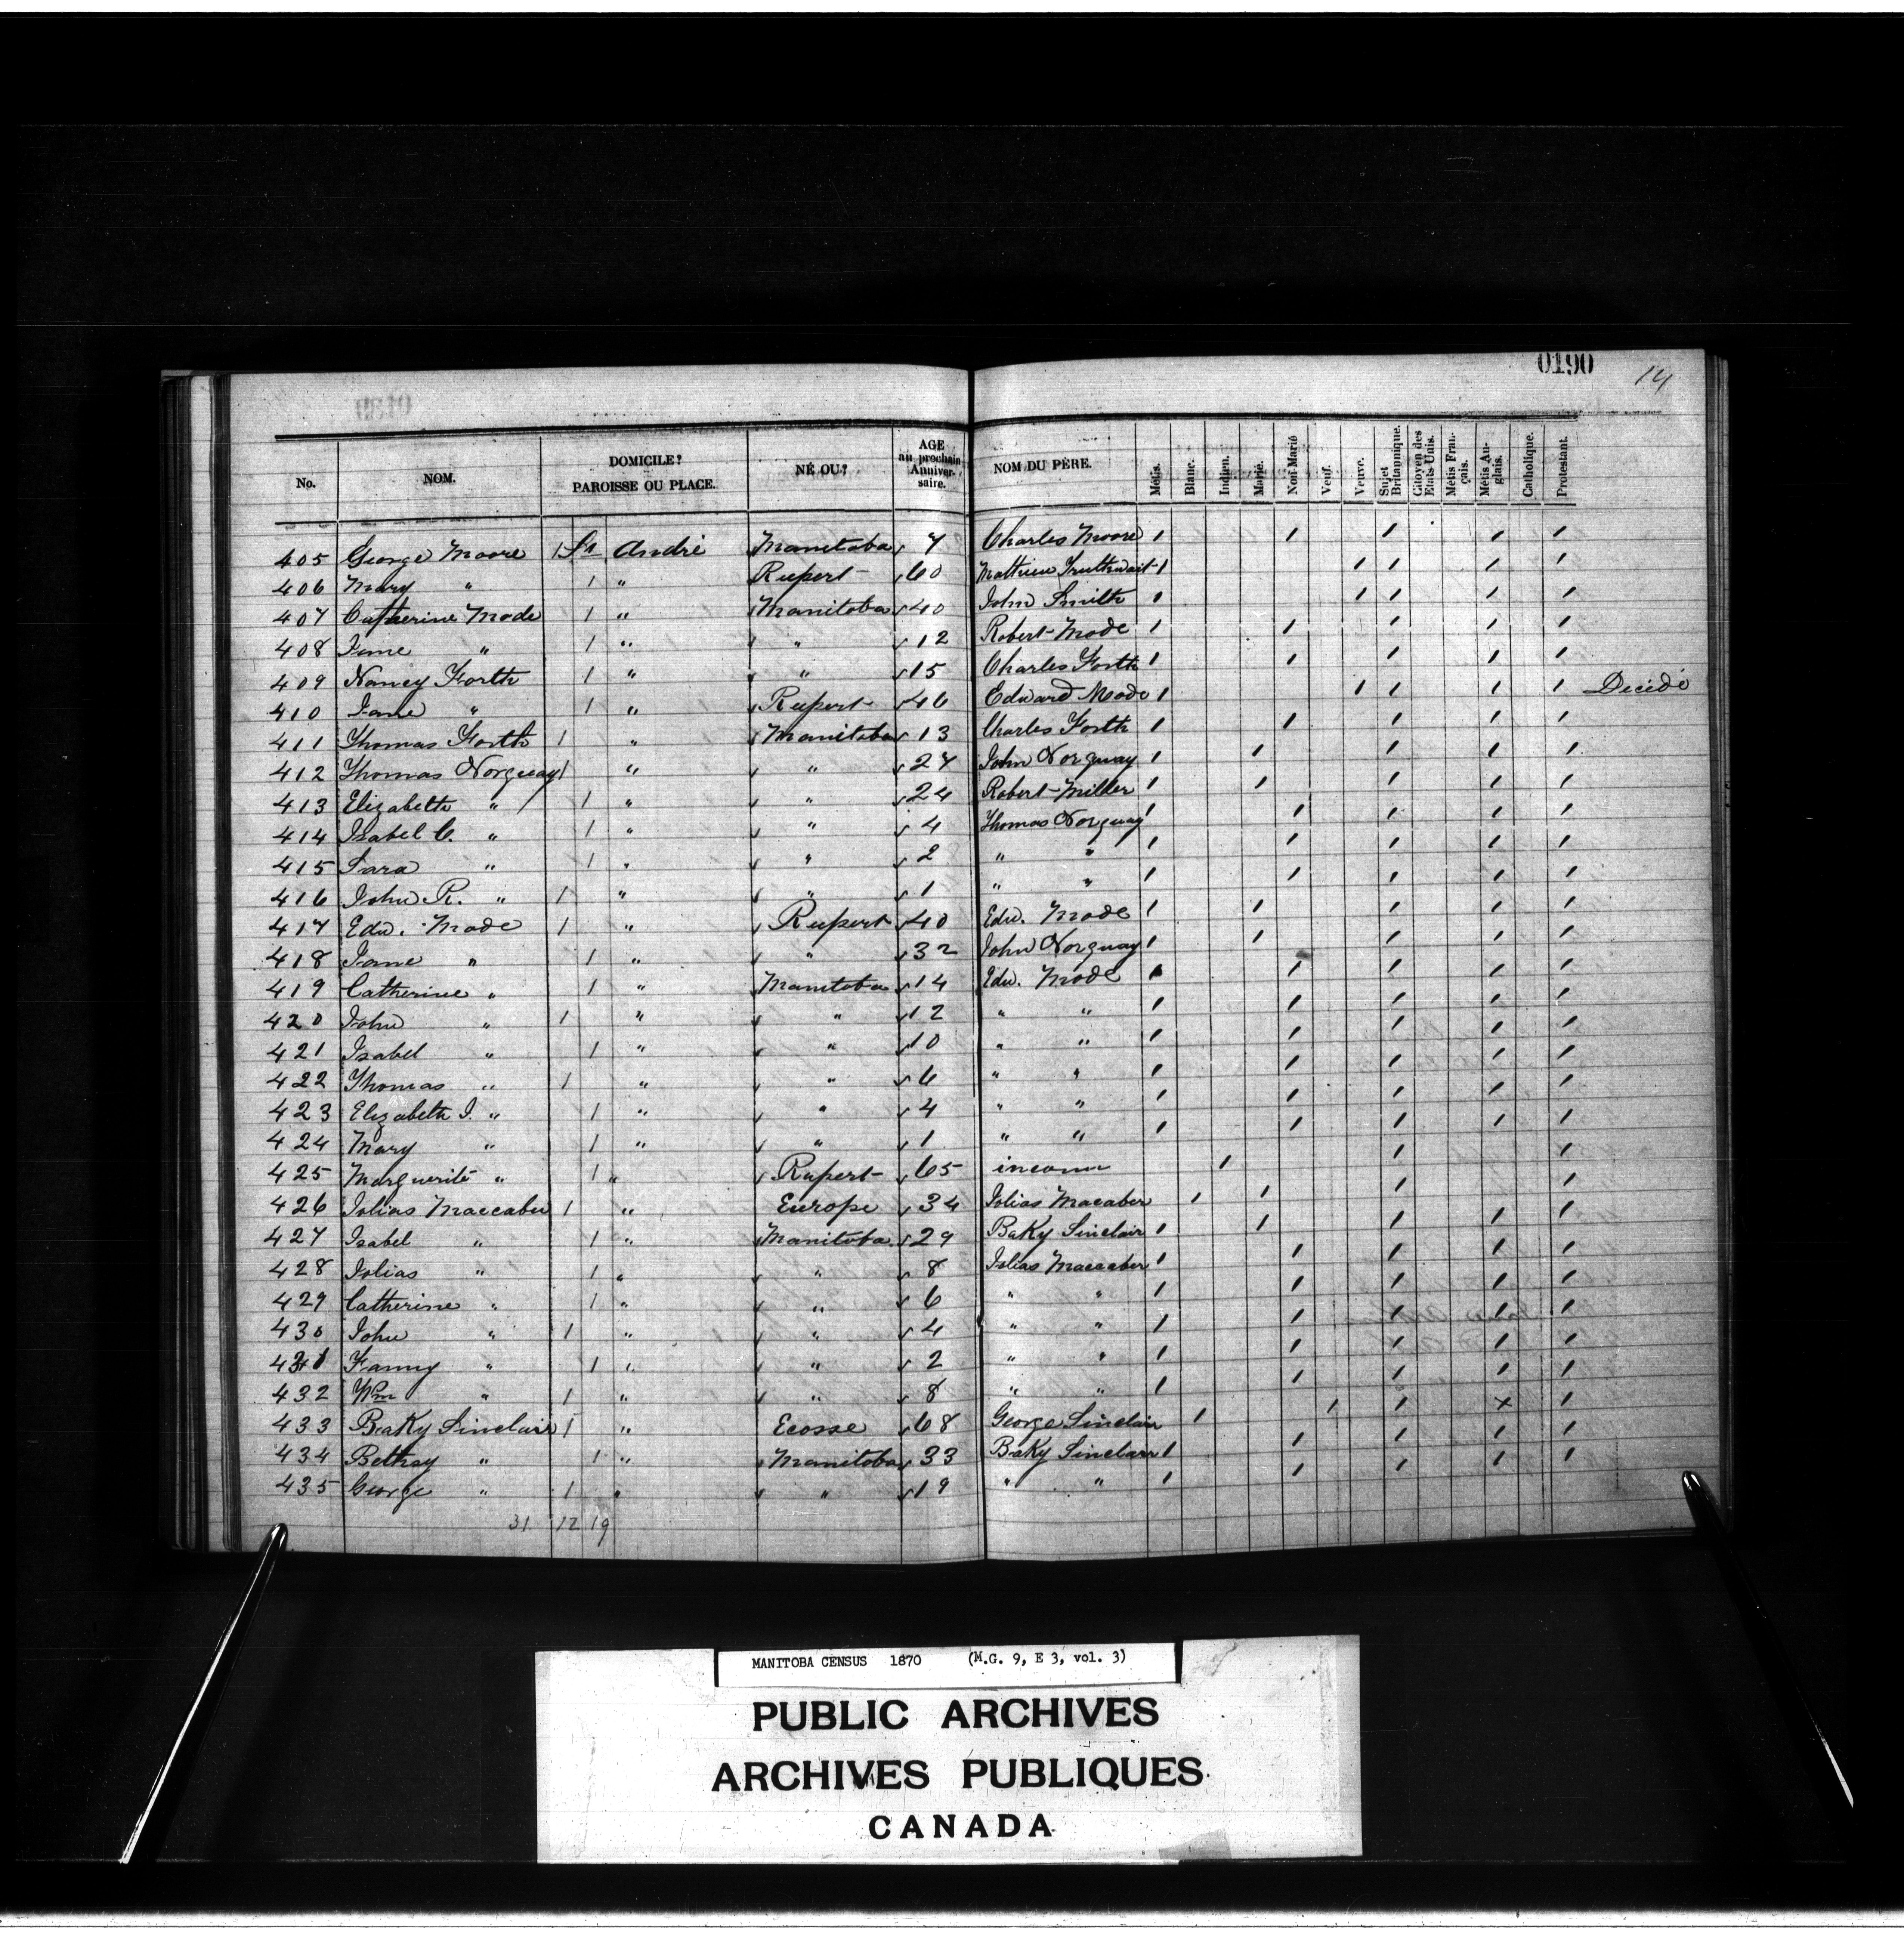 0190
14
No. NOM. DOMICILE? PAROISSE OU PLACE. NÉ OU? AGE au prochain Anniversaire. NOM DU PÈRE. Métis. Blanc. Indien. Marié. Non Marié Veuf. Veuve. Sujet Britannique. Citoyen des Etats Unis. Métis Français. Métis Anglais. Catholique. Protestant.
405 George Moore 1 St André Manitoba 7 Charles Moore 1 1 1 1 1
406 Mary " 1 " Rupert 60 Mathieu Truthwait 1 1 1 1 1
407 Catherine Mode 1 " Manitoba 40 John Smith 1 1 1 1 1
408 Jane " 1 " " 12 Robert Mode 1 1 1 1 1
409 Nancy Forth 1 " " 15 Charles Forth 1 1 1 1 1
410 Jane " 1 " Rupert 46 Edward Mode 1 1 1 1 1 Décédé
411 Thomas Forth 1 " Manitoba 13 Charles Forth 1 1 1 1 1
412 Thomas Norquay 1 " " 27 John Norquay 1 1 1 1 1
413 Elizabeth " 1 " " 24 Robert Miller 1 1 1 1 1
414 Isabel C. " 1 " " 4 Thomas Norquay 1 1 1 1 1
415 Sara " 1 " " 2 " " 1 1 1 1 1
416 John R. " 1 " " 1 " " 1 1 1 1 1
417 Edw. Mode 1 " Rupert 40 Edw. Mode 1 1 1 1 1
418 Jane " 1 " " 32 John Norquay 1 1 1 1 1
419 Catherine " 1 " Manitoba 14 Edw. Mode 1 1 1 1 1
420 John " 1 " " 12 " " 1 1 1 1 1
421 Isabel " 1 " " 10 " " 1 1 1 1 1
422 Thomas " 1 " " 6 " " 1 1 1 1 1
423 Elizabeth J. " 1 " " 4 " " 1 1 1 1 1
424 Mary " 1 " " 1 " " 1 1 1 1 1
425 Marguerite " 1 " Rupert 65 inconnu 1 1 1
426 Jolias Maccaber 1 " Europe 34 Jolias Macaber 1 1 1 1
427 Isabel " 1 " Manitoba 29 BaKy Sinclair 1 1 1 1 1
428 Jolias " 1 " " 8 Jolias Maccaber 1 1 1 1 1
429 Catherine " 1 " " 6 " " 1 1 1 1 1
430 John " 1 " " 4 " " 1 1 1 1 1
431 Fanny " 1 " " 2 " " 1 1 1 1 1
432 Wm " 1 " " 8 " " 1 1 1 1 1
433 BaKy Sinclair 1 " Ecosse 68 George Sinclair 1 1 1 x 1
434 Bethsy " 1 " Manitoba 33 BaKy Sinclair 1 1 1 1 1
435 George " 1 " " 19 " " 1 1 1 1 1
31 12 19
MANITOBA CENSUS 1870 (M.G. 9, E 3, vol. 3)
PUBLIC ARCHIVES
ARCHIVES PUBLIQUES
CANADA